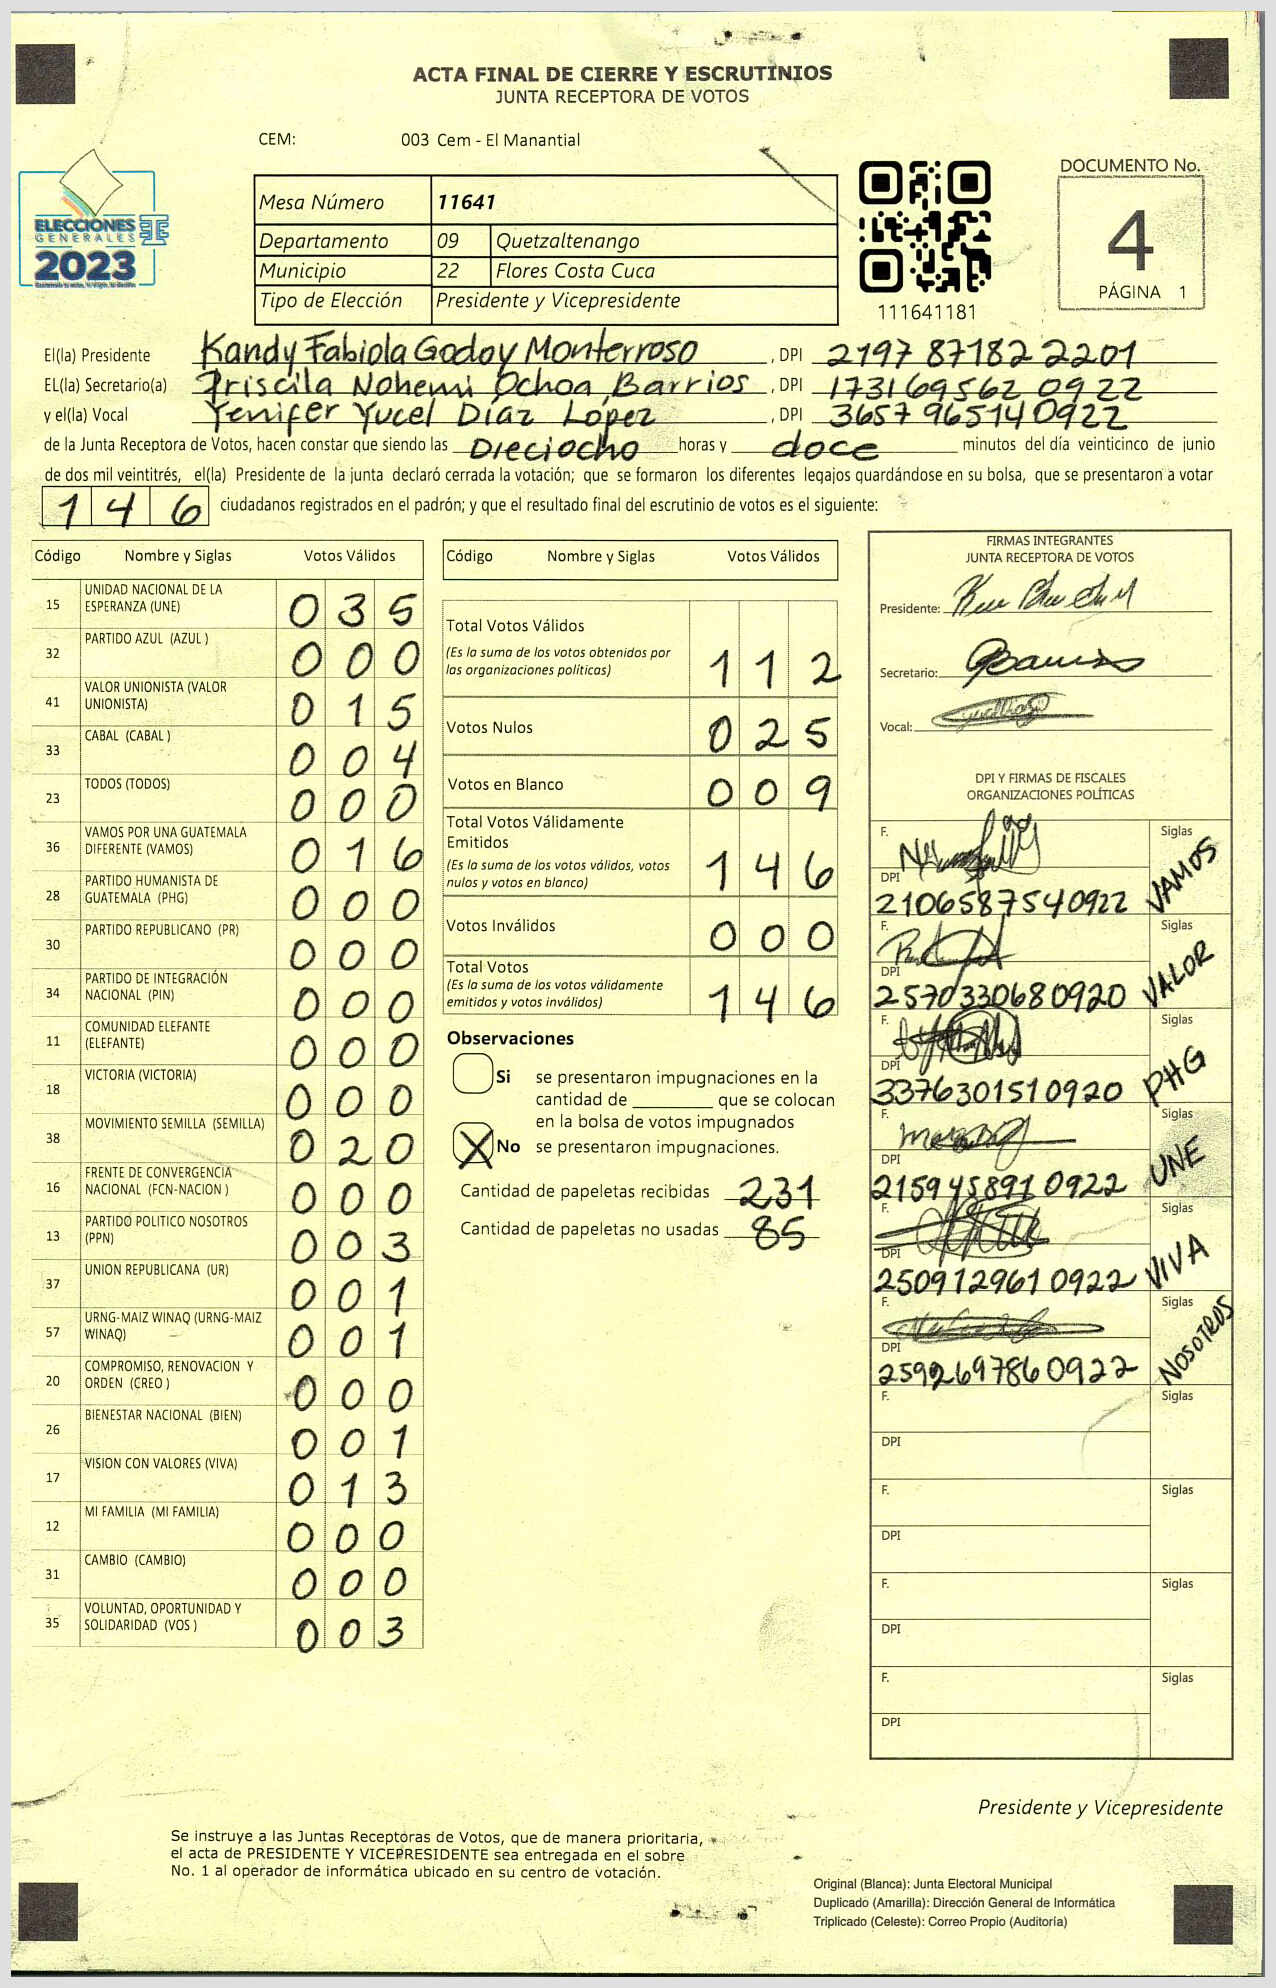 ACTA FINAL DE CIERRE Y ESCRUTINIOS
JUNTA RECEPTORA DE VOTOS
CEM: 003 Cem - El Manantial
ELECCIONES
GENERALES
2023
Mesa Número 11641
Departamento 09 Quetzaltenango
Municipio 22 Flores Costa Cuca
Tipo de Elección Presidente y Vicepresidente
111641181
DOCUMENTO No.
4
PÁGINA 1
El(la) Presidente Kandy Fabiola Godoy Monterroso , DPI 2197 87182 2201
EL(la) Secretario(a) Priscila Nohemi Ochoa Barrios , DPI 173169562 0922
y el(la) Vocal Yenifer Yucel Díaz López , DPI 3657 96514 0922
de la Junta Receptora de Votos, hacen constar que siendo las Dieciocho horas y doce minutos del día veinticinco de junio
de dos mil veintitrés, el(la) Presidente de la junta declaró cerrada la votación; que se formaron los diferentes legajos guardándose en su bolsa, que se presentaron a votar
146 ciudadanos registrados en el padrón; y que el resultado final del escrutinio de votos es el siguiente:
Código Nombre y Siglas Votos Válidos
15 UNIDAD NACIONAL DE LA ESPERANZA (UNE) 035
32 PARTIDO AZUL (AZUL ) 000
41 VALOR UNIONISTA (VALOR UNIONISTA) 015
33 CABAL (CABAL ) 004
23 TODOS (TODOS) 000
36 VAMOS POR UNA GUATEMALA DIFERENTE (VAMOS) 016
28 PARTIDO HUMANISTA DE GUATEMALA (PHG) 000
30 PARTIDO REPUBLICANO (PR) 000
34 PARTIDO DE INTEGRACIÓN NACIONAL (PIN) 000
11 COMUNIDAD ELEFANTE (ELEFANTE) 000
18 VICTORIA (VICTORIA) 000
38 MOVIMIENTO SEMILLA (SEMILLA) 020
16 FRENTE DE CONVERGENCIA NACIONAL (FCN-NACION ) 000
13 PARTIDO POLITICO NOSOTROS (PPN) 003
37 UNION REPUBLICANA (UR) 001
57 URNG-MAIZ WINAQ (URNG-MAIZ WINAQ) 001
20 COMPROMISO, RENOVACION Y ORDEN (CREO ) 000
26 BIENESTAR NACIONAL (BIEN) 001
17 VISION CON VALORES (VIVA) 013
12 MI FAMILIA (MI FAMILIA) 000
31 CAMBIO (CAMBIO) 000
35 VOLUNTAD, OPORTUNIDAD Y SOLIDARIDAD (VOS ) 003
Código Nombre y Siglas Votos Válidos
Total Votos Válidos
(Es la suma de los votos obtenidos por
las organizaciones políticas) 112
Votos Nulos 025
Votos en Blanco 009
Total Votos Válidamente
Emitidos
(Es la suma de los votos válidos, votos
nulos y votos en blanco) 146
Votos Inválidos 000
Total Votos
(Es la suma de los votos válidamente
emitidos y votos inválidos) 146
Observaciones
Si se presentaron impugnaciones en la
cantidad de ________ que se colocan
en la bolsa de votos impugnados
X No se presentaron impugnaciones.
Cantidad de papeletas recibidas 231
Cantidad de papeletas no usadas 85
FIRMAS INTEGRANTES
JUNTA RECEPTORA DE VOTOS
Presidente:
Secretario:
Vocal:
DPI Y FIRMAS DE FISCALES
ORGANIZACIONES POLÍTICAS
F. Siglas VAMOS
DPI 2106587540922
F. Siglas VALOR
DPI 2570330680920
F. Siglas PHG
DPI 3376301510920
F. Siglas UNE
DPI 2159458910922
F. Siglas VIVA
DPI 2509129610922
F. Siglas NOSOTROS
DPI 2592697860922
F. Siglas
DPI
F. Siglas
DPI
F. Siglas
DPI
F. Siglas
DPI
Presidente y Vicepresidente
Se instruye a las Juntas Receptoras de Votos, que de manera prioritaria,
el acta de PRESIDENTE Y VICEPRESIDENTE sea entregada en el sobre
No. 1 al operador de informática ubicado en su centro de votación.
Original (Blanca): Junta Electoral Municipal
Duplicado (Amarilla): Dirección General de Informática
Triplicado (Celeste): Correo Propio (Auditoría)